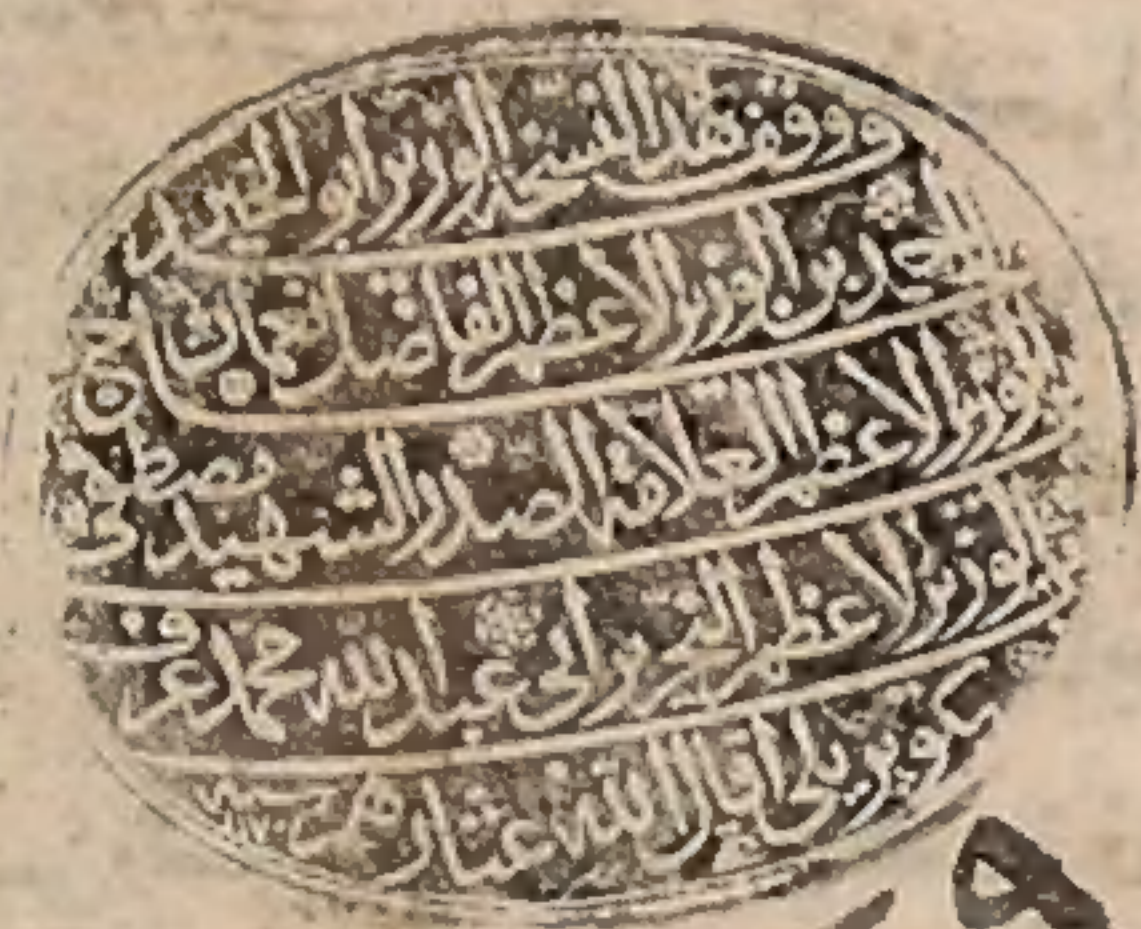 ووقف هذا النسخه الوزير ابو الخير
احمد بن الوزير الاعظم الفاضل نعمان بن
الوزير الاعظم العلامة الصدر الشهيد مصطفى
الوزير الاعظم النحرير ابي عبد الله محمد عرف
بكوپريلي اقال الله عثارهم